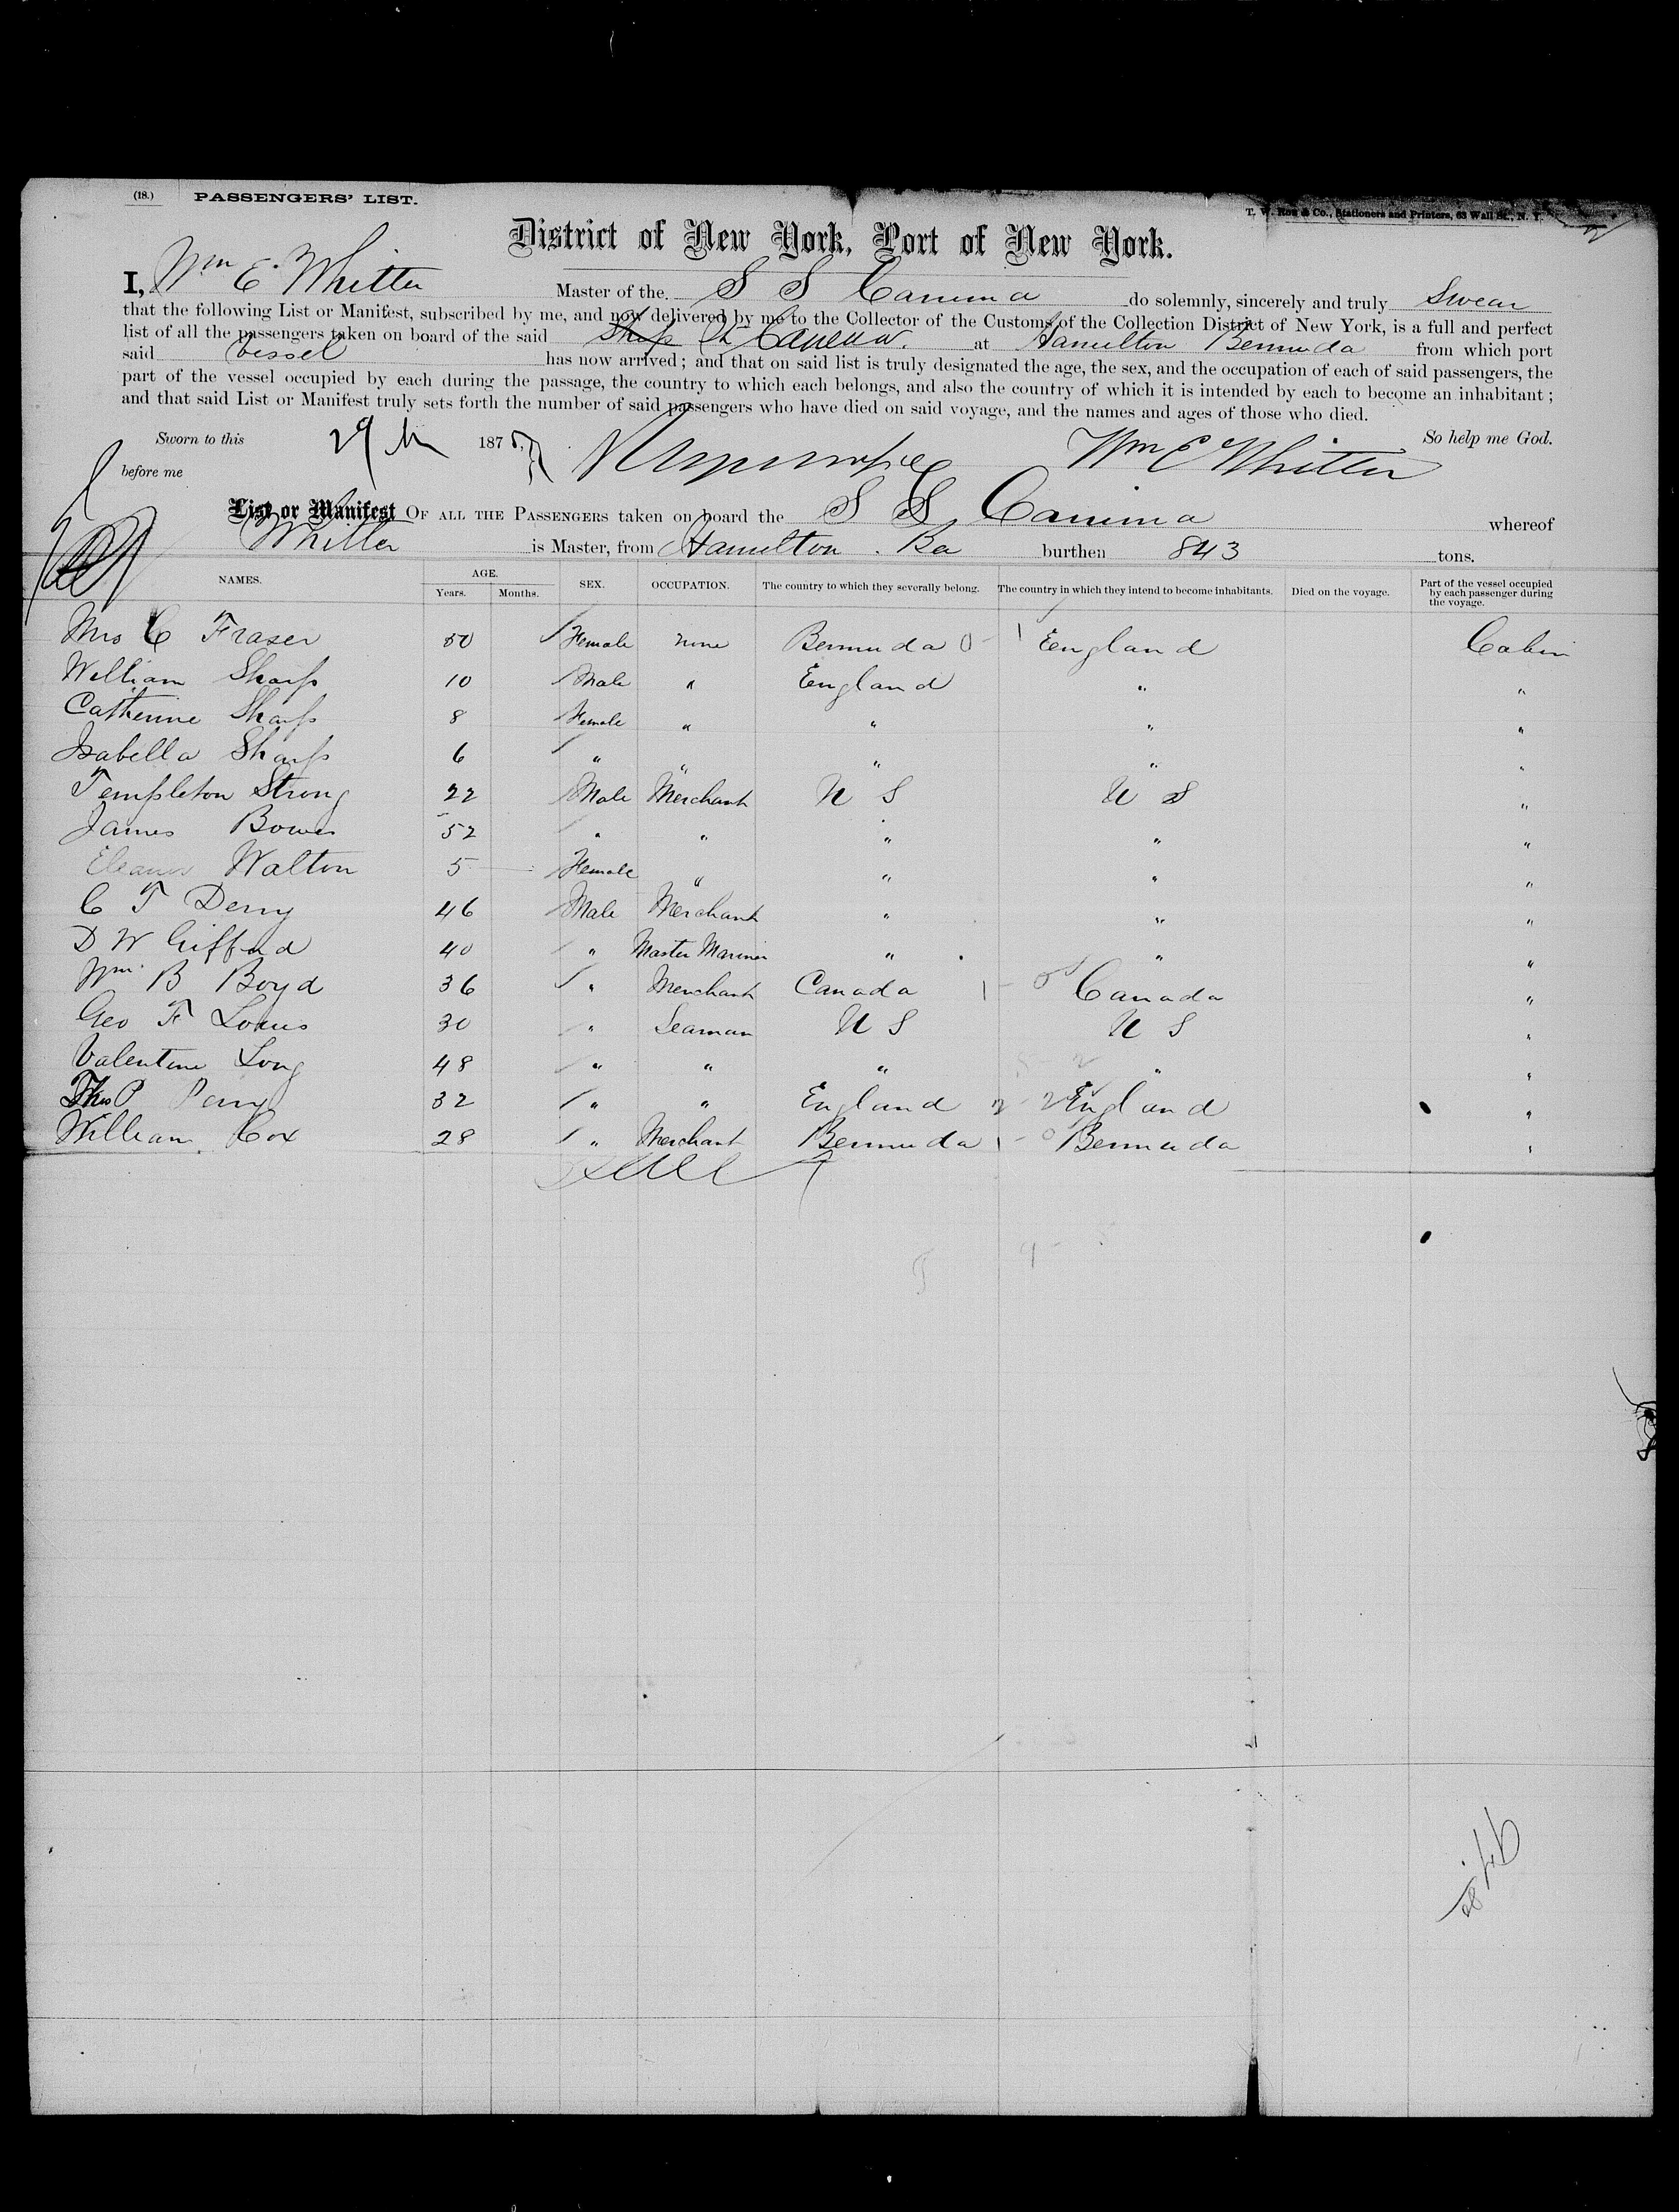 (18.) PASSENGERS' LIST.
T. W. Roe & Co., Stationers and Printers, 63 Wall St., N. Y.
District of New York, Port of New York.
I, Wm E Whitter Master of the S S Canima do solemnly, sincerely and truly Swear
that the following List or Manifest, subscribed by me, and now delivered by me to the Collector of the Customs of the Collection District of New York, is a full and perfect
list of all the passengers taken on board of the said at Hamilton Bermuda from which port
said Vessel has now arrived; and that on said list is truly designated the age, the sex, and the occupation of each of said passengers, the
part of the vessel occupied by each during the passage, the country to which each belongs, and also the country of which it is intended by each to become an inhabitant;
and that said List or Manifest truly sets forth the number of said passengers who have died on said voyage, and the names and ages of those who died.
Sworn to this 29th 187 So help me God.
before me Wm E Whitter
List or Manifest OF ALL THE PASSENGERS taken on board the S S Canima whereof
Whitter is Master, from Hamilton Ba burthen 843 tons.
NAMES. AGE. Years. Months. SEX. OCCUPATION. The country to which they severally belong. The country in which they intend to become inhabitants. Died on the voyage. Part of the vessel occupied by each passenger during the voyage.
Mrs C Fraser 50 Female none Bermuda 0 - 1 England Cabin
William Sharp 10 Male " England " "
Catherine Sharp 8 Female " " " "
Isabella Sharp 6 " " " " "
Templeton Strong 22 Male Merchant U S U S "
James Bowes 52 " " " " "
Eleanor Walton 5 Female " " " "
C T Derry 46 Male Merchant " " "
D W Gifford 40 " Master Mariner " " "
Wm. B Boyd 36 " Merchant Canada 1 - 0 Canada "
Geo F 30 " Seaman U S U S "
Valentine Long 48 " " " " "
Thos P Perry 32 " " England 2 - 2 England "
William Cox 28 " Merchant Bermuda 1 - 0 Bermuda "